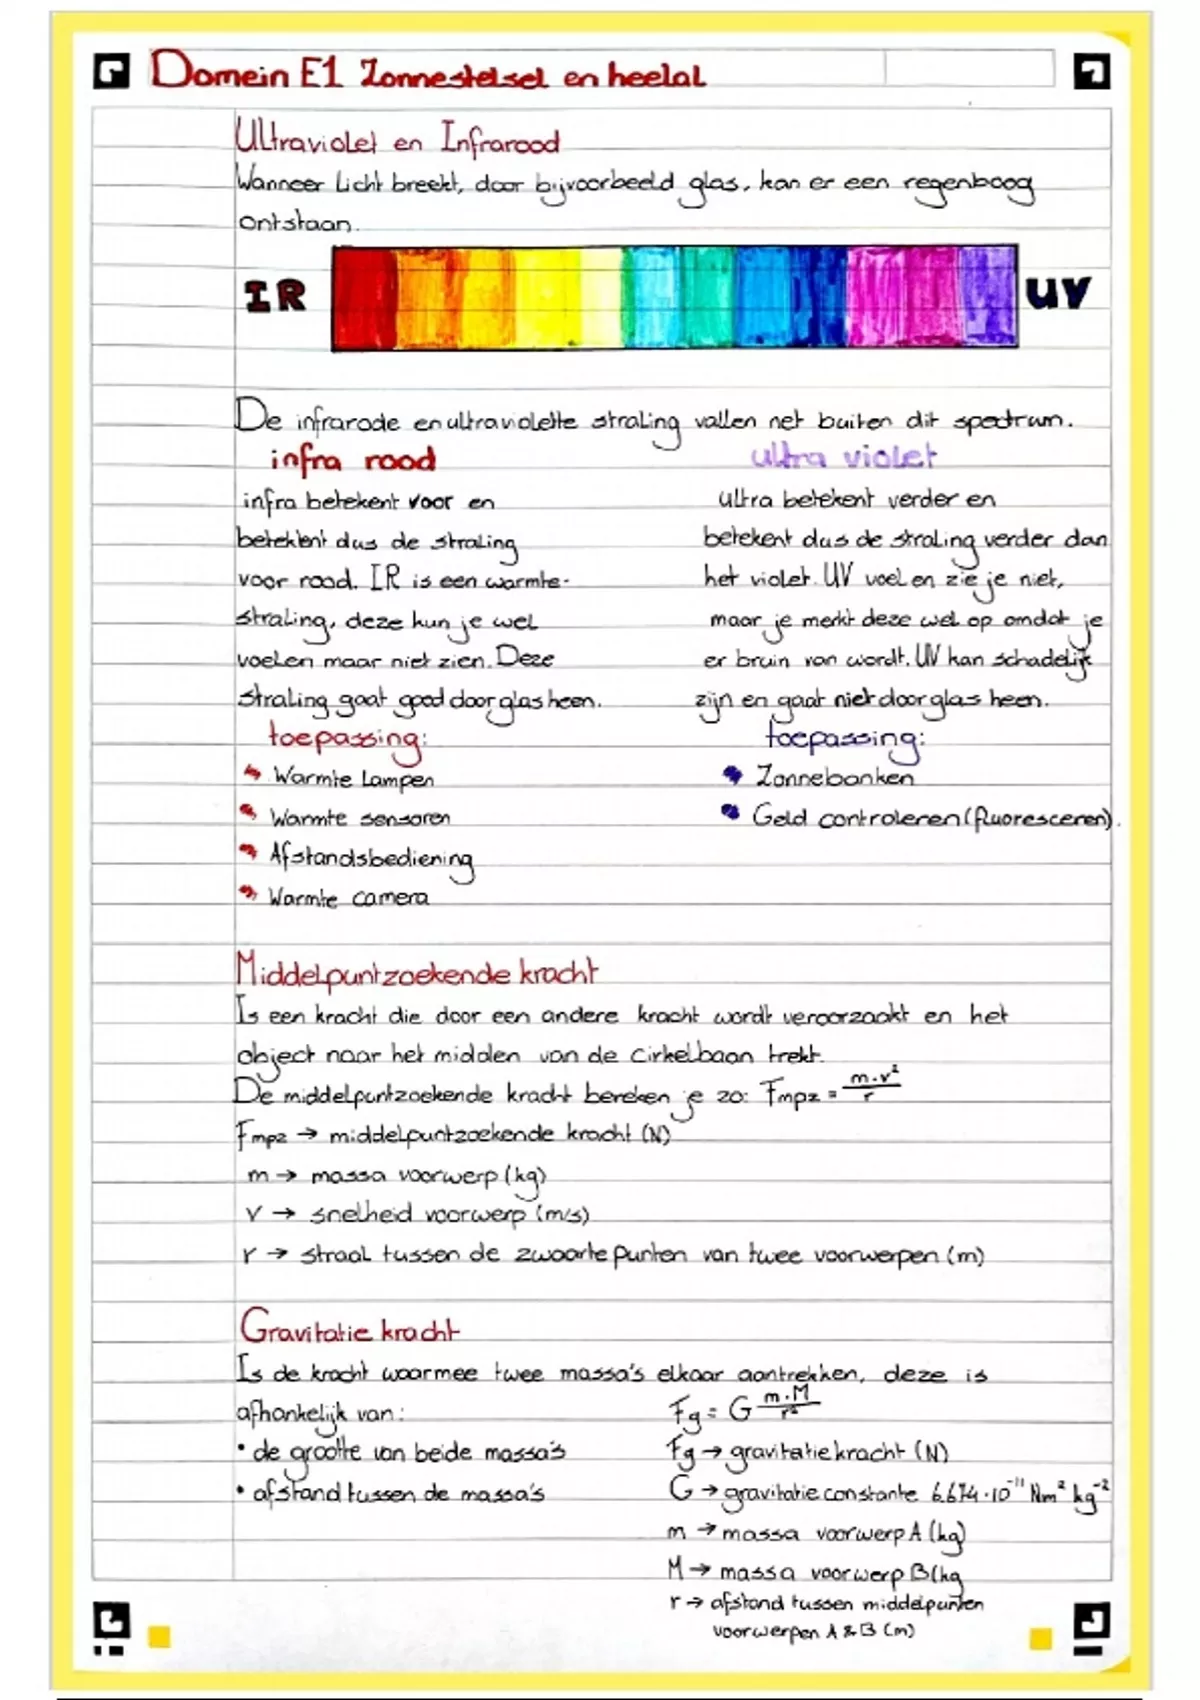 Domein E1 Zonnestelsel en heelal
Ultraviolet en Infrarood
Wanneer licht breekt, door bijvoorbeeld glas, kan er een regenboog
ontstaan.
IR
UV
De infrarode en ultraviolette straling vallen net buiten dit spectrum.
infra rood
infra betekent voor en
betekent dus de straling
voor rood. IR is een warmte-
straling, deze kun je wel
voelen maar niet zien. Deze
straling gaat goed door glas heen.
toepassing:
Warmte lampen
Warmte sensoren
Afstandsbediening
Warmte camera
ultra violet
ultra betekent verder en
betekent dus de straling verder dan
het violet. UV voel en zie je niet,
maar je merkt deze wel op omdat je
er bruin van wordt. UV kan schadelijk
zijn en gaat niet door glas heen.
toepassing:
Zonnebanken
Geld controleren (fluoresceren).
Middelpuntzoekende kracht
Is een kracht die door een andere kracht wordt veroorzaakt en het
object naar het midden van de cirkelbaan trekt.
De middelpuntzoekende kracht bereken je zo: Fmpz = m·v²/r
Fmpz → middelpuntzoekende kracht (N)
m → massa voorwerp (kg)
v → snelheid voorwerp (m/s)
r → straal tussen de zwaartepunten van twee voorwerpen (m)
Gravitatie kracht
Is de kracht waarmee twee massa's elkaar aantrekken, deze is
afhankelijk van:
• de grootte van beide massa's
• afstand tussen de massa's
Fg = G m·M/r²
Fg → gravitatiekracht (N)
G → gravitatie constante 6.674·10⁻¹¹ Nm² kg⁻²
m → massa voorwerp A (kg)
M → massa voorwerp B (kg
r → afstand tussen middelpunten
voorwerpen A & B (m)